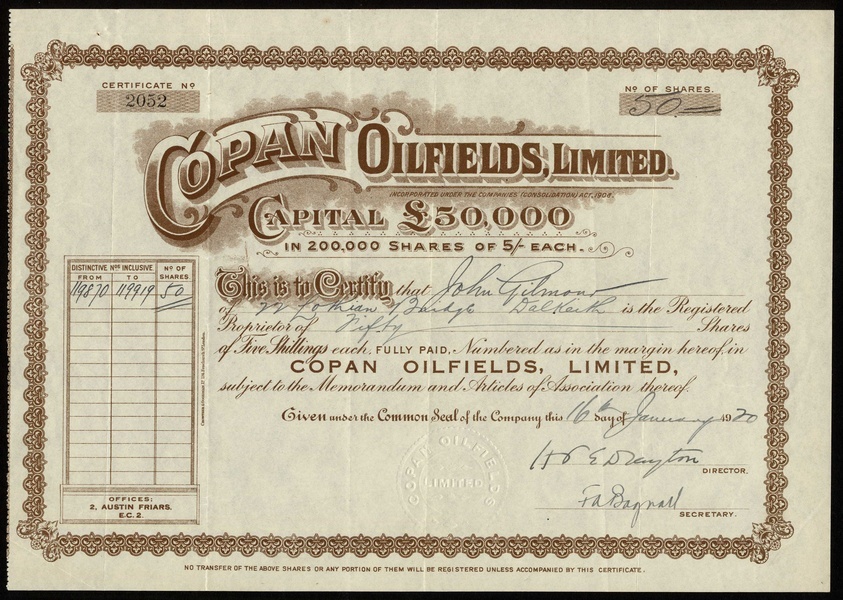 CERTIFICATE Nº
2052
Nº OF SHARES.
50
COPAN OILFIELDS, LIMITED.
INCORPORATED UNDER THE COMPANIES (CONSOLIDATION) ACT, 1908.
CAPITAL £50,000
IN 200,000 SHARES OF 5/- EACH.
DISTINCTIVE Nos INCLUSIVE
FROM TO
Nº OF SHARES
119870 119919 50
This is to Certify that John Gilmour
of 22 Lothian Bridge Dalkeith is the Registered
Proprietor of Fifty Shares
of Five Shillings each, FULLY PAID, Numbered as in the margin hereof, in
COPAN OILFIELDS, LIMITED,
subject to the Memorandum and Articles of Association thereof.
Given under the Common Seal of the Company this 16th day of January 1920
H E Drayton
DIRECTOR.
COPAN OILFIELDS
LIMITED
FA Bagnall
SECRETARY.
OFFICES:
2, AUSTIN FRIARS.
E.C. 2.
NO TRANSFER OF THE ABOVE SHARES OR ANY PORTION OF THEM WILL BE REGISTERED UNLESS ACCOMPANIED BY THIS CERTIFICATE.